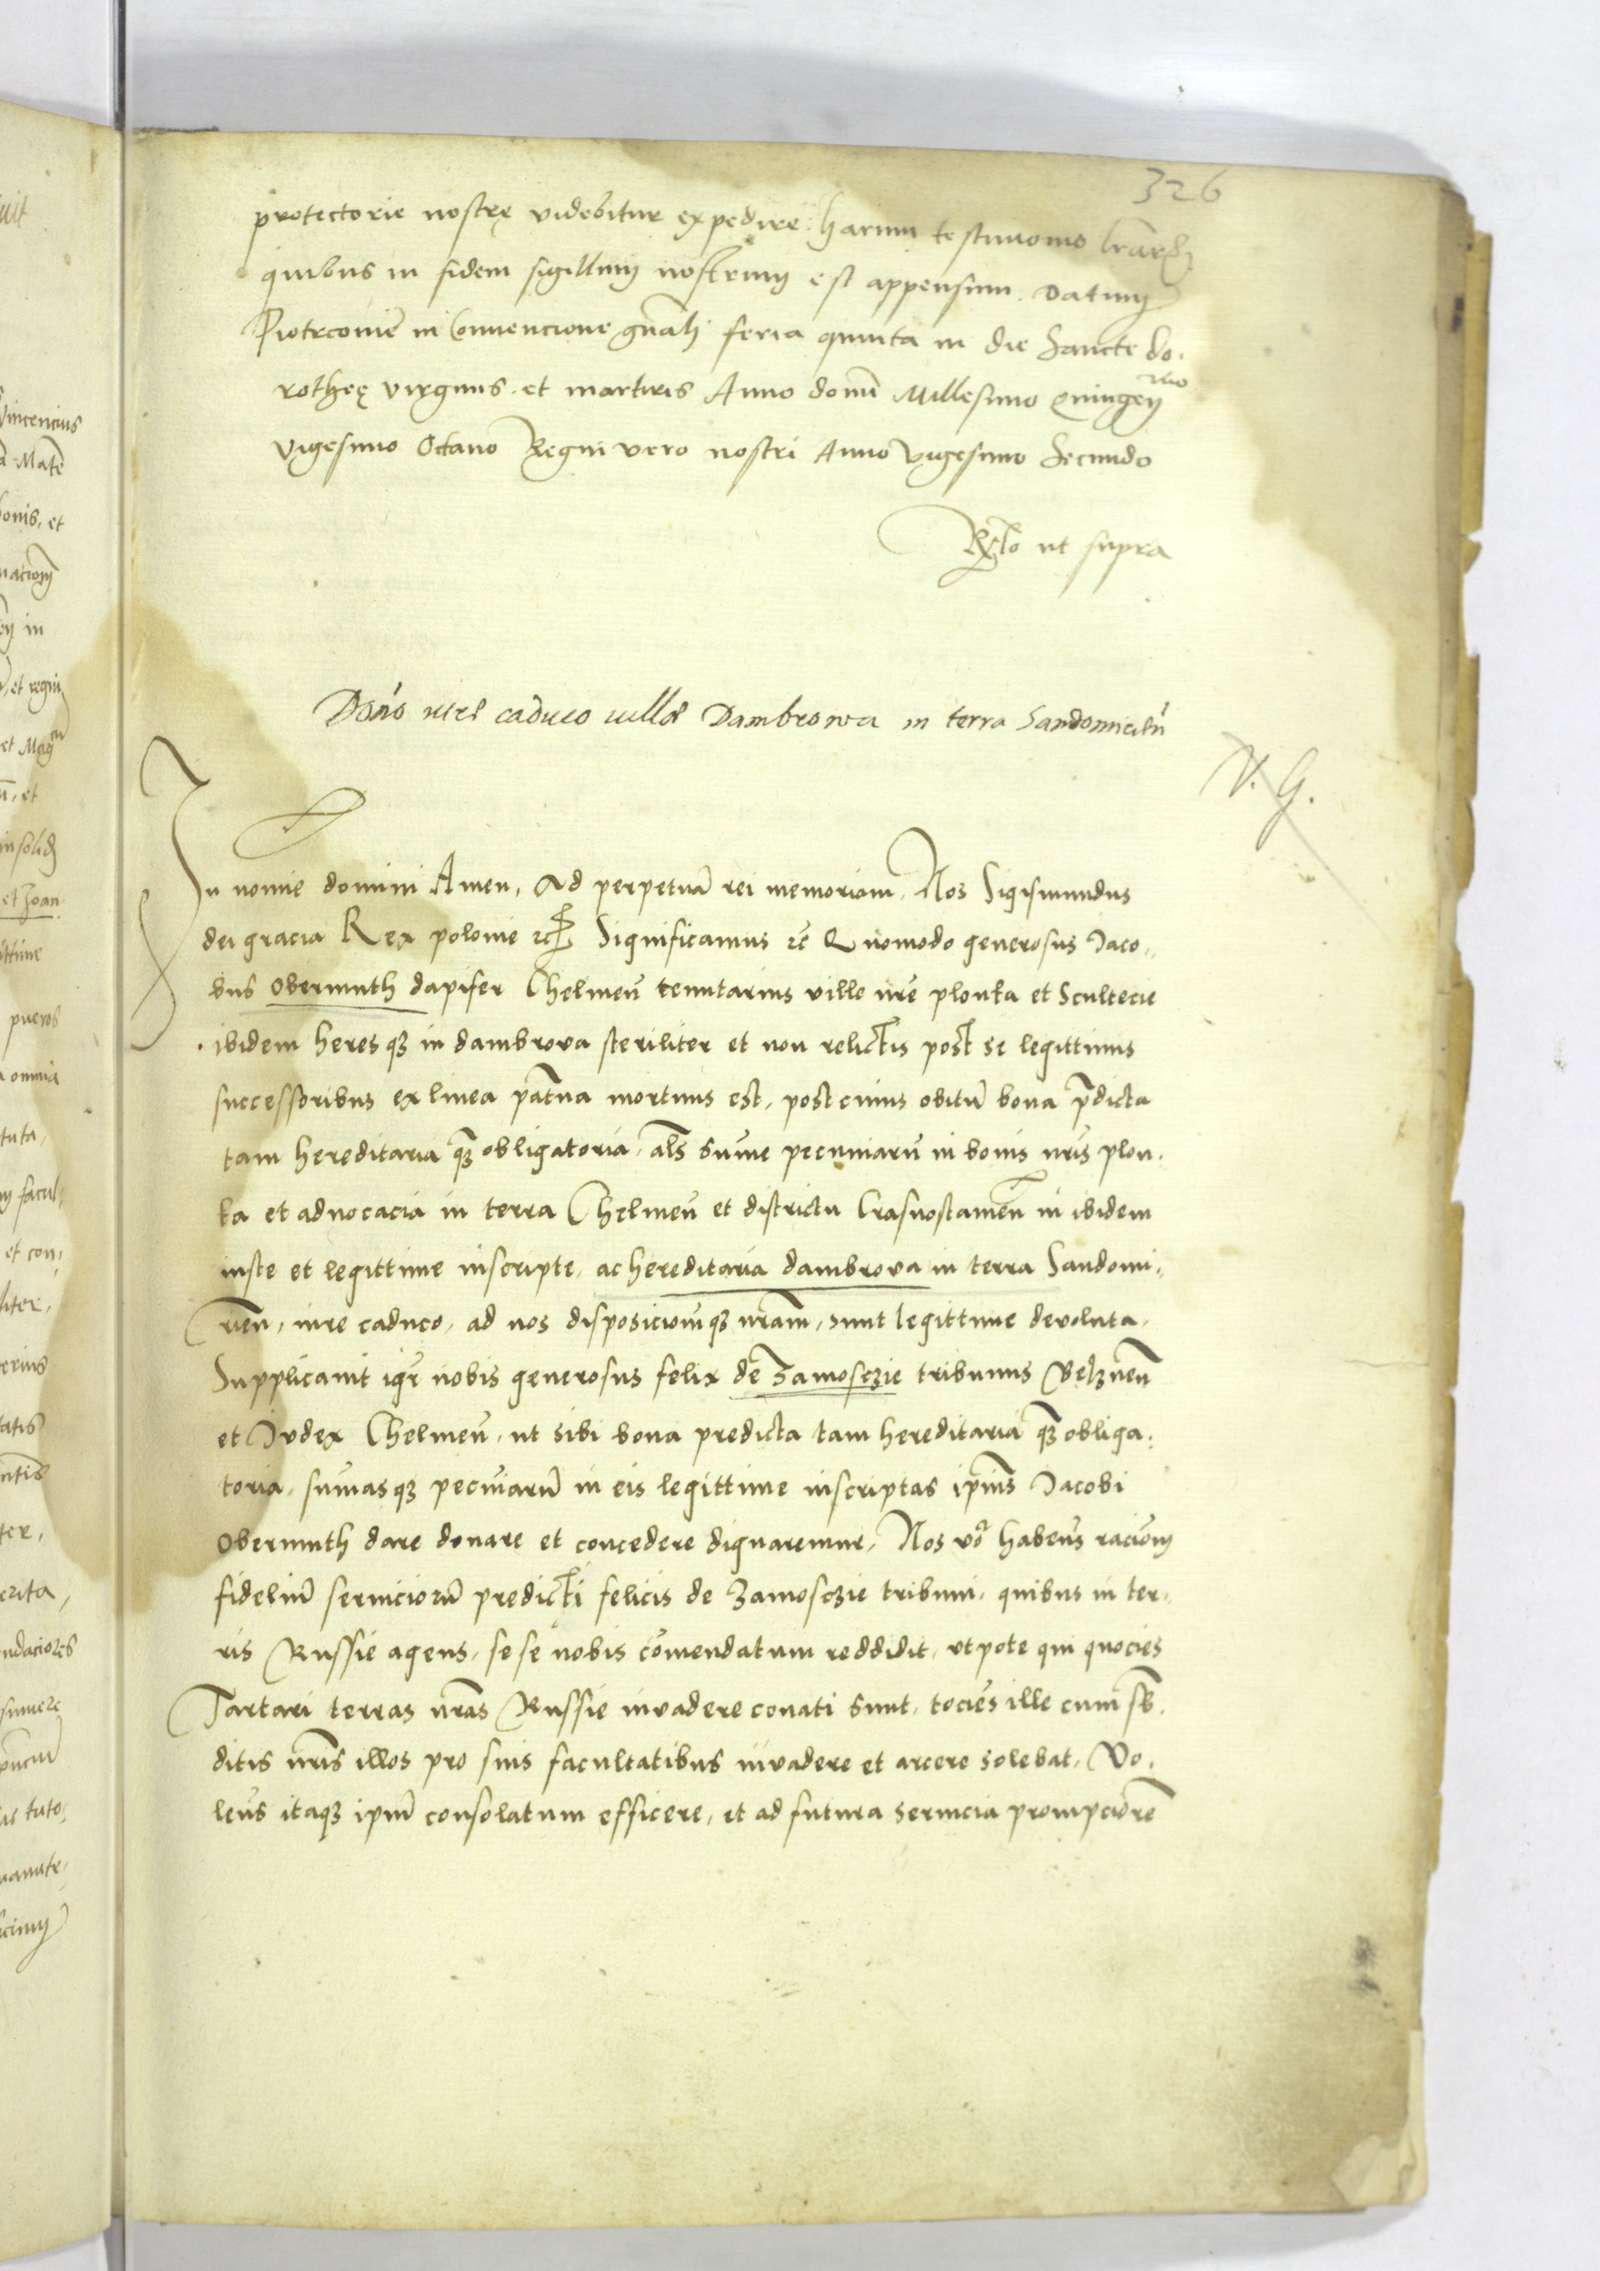 326
protectorie nostrę videbitur expedire. harum testimonio lrarum
quibus in fidem sigillum nostrum est appensum. Datum
Piotrcovień in Convencione gnali feria quinta in die Sancte Do-
rotheę virginis et martiris Anno domi Millesimo Quingenmo
vigesimo Octavo Regni vero nostri Anno vigesimo Secundo
Relo ut supra
Donō iure caduco villæ Dambrowa in terra Sandomirień
V. G.
In nomie domini Amen, Ad perpetuā rei memoriam, Nos Sigismundus
dei gracia Rex polonie etc Significamus etc Quomodo generosus Jaco-
bus Obermuth dapifer Chelmeń tenutarius ville nrē plonka et Scultecie
ibidem heresqȝ in dambrova steriliter et non relictis post se legittimis
successoribus ex linea patna mortuus est, post cuius obitū bona pdicta
tam hereditaria qȝ obligatoria, als sume pecuniarū in bonis nris plon-
ka et advocacia in terra Chelmeń et districtu Crasnostawień in ibidem
iuste et legittime inscripte, ac hereditaria dambrova in terra Sandomi-
rień, iure caduco, ad nos disposicionēqȝ nram, sunt legittime devoluta,
Supplicavit igr nobis generosus felix de Zamosczie tribunus Belzneń
et Judex Chelmeń, ut sibi bona predicta tam hereditaria qȝ obliga-
toria, sumasqȝ pecuniarū in eis legittime inscriptas ipius Jacobi
Obermuth dare donare et concedere dignaremur, Nos vo habeńs racionem
fideliū serviciorū predicti felicis de Zamosczie tribuni, quibus in ter-
ris Russie agens, sese nobis comendatum reddidit, utpote qui quocies
Tartari terras nras Russie invadere conati sunt, tocies ille cum sb-
ditis nris illos pro suis facultatibus invadere et arcere solebat, Vo-
leńs itaqȝ ipm consolatum efficere, et ad futura servicia prompciorē